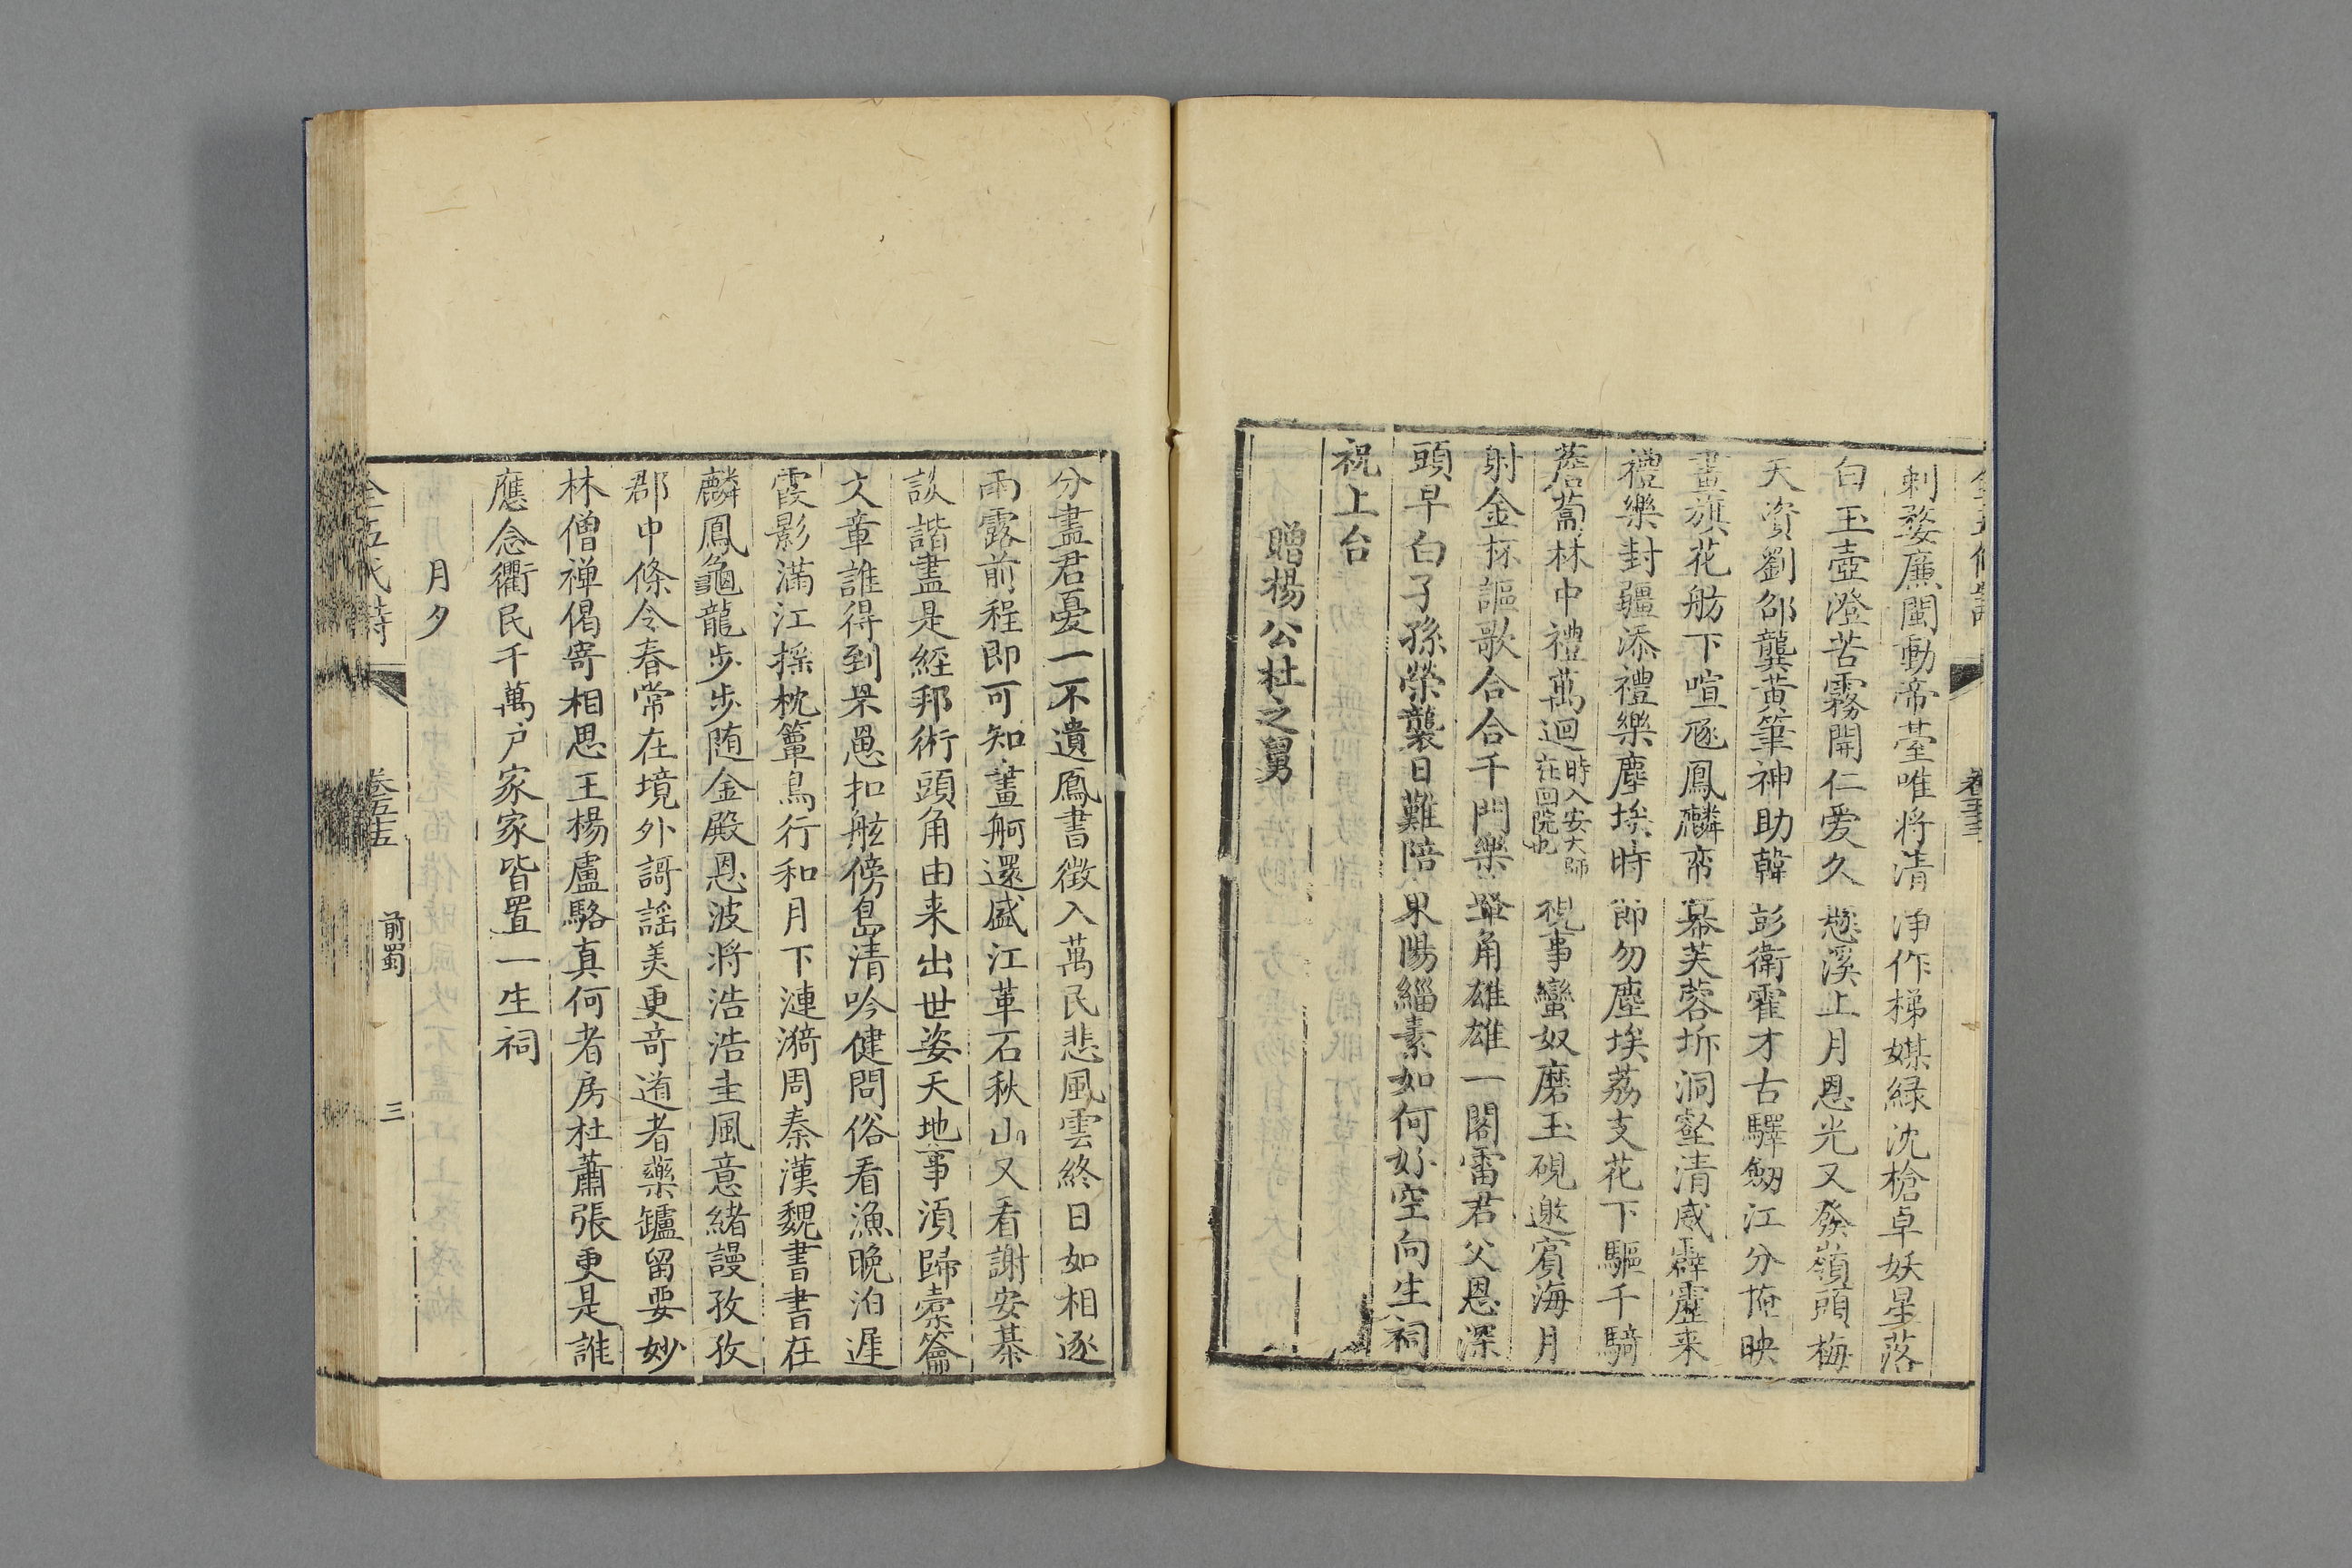 刺婺廉閩動帝臺唯将清淨作梯媒緑沈槍卓妖星落
白玉壺澄苦霧開仁爱久懸溪上月恩光又發嶺頭梅
天資劉邵龔黄筆神助韓彭衛霍才古驛劒江分掩映
畫旗花舫下喧豗鳳麟帟幕芙蓉坼洞壑清威霹靂来
禮樂封疆添禮樂塵埃時節勿塵埃荔支花下驅千騎
薝蔔林中禮萬迴
時入安大師
在回院也
視事蠻奴磨玉硯邀賓海月
射金杯謳歌合合千門樂鼙角雄雄一閣雷君父恩深
頭早白子孫榮襲日難陪果陽緇素如何好空向生祠
祝上台
贈楊公杜之舅
卷五十五
分盡君憂一不遺鳳書徵入萬民悲風雲終日如相逐
雨露前程即可知畫舸還盛江革石秋山又看謝安棊
談諧盡是經邦術頭角由来出世姿天地事湏歸橐籥
文章誰得到罘罳扣舷傍島清吟健問俗看漁晚泊遲
霞影滿江揺枕簟鳥行和月下漣漪周秦漢魏書書在
麟鳳龜龍步步随金殿恩波将浩浩圭風意緒謾孜孜
郡中條令春常在境外謌謡美更奇逎者藥鑪留要妙
林僧禅偈寄相思王楊盧駱真何者房杜蕭張更是誰
應念衢民千萬户家家皆置一生祠
月夕
全五代詩
卷五十五
前蜀
三